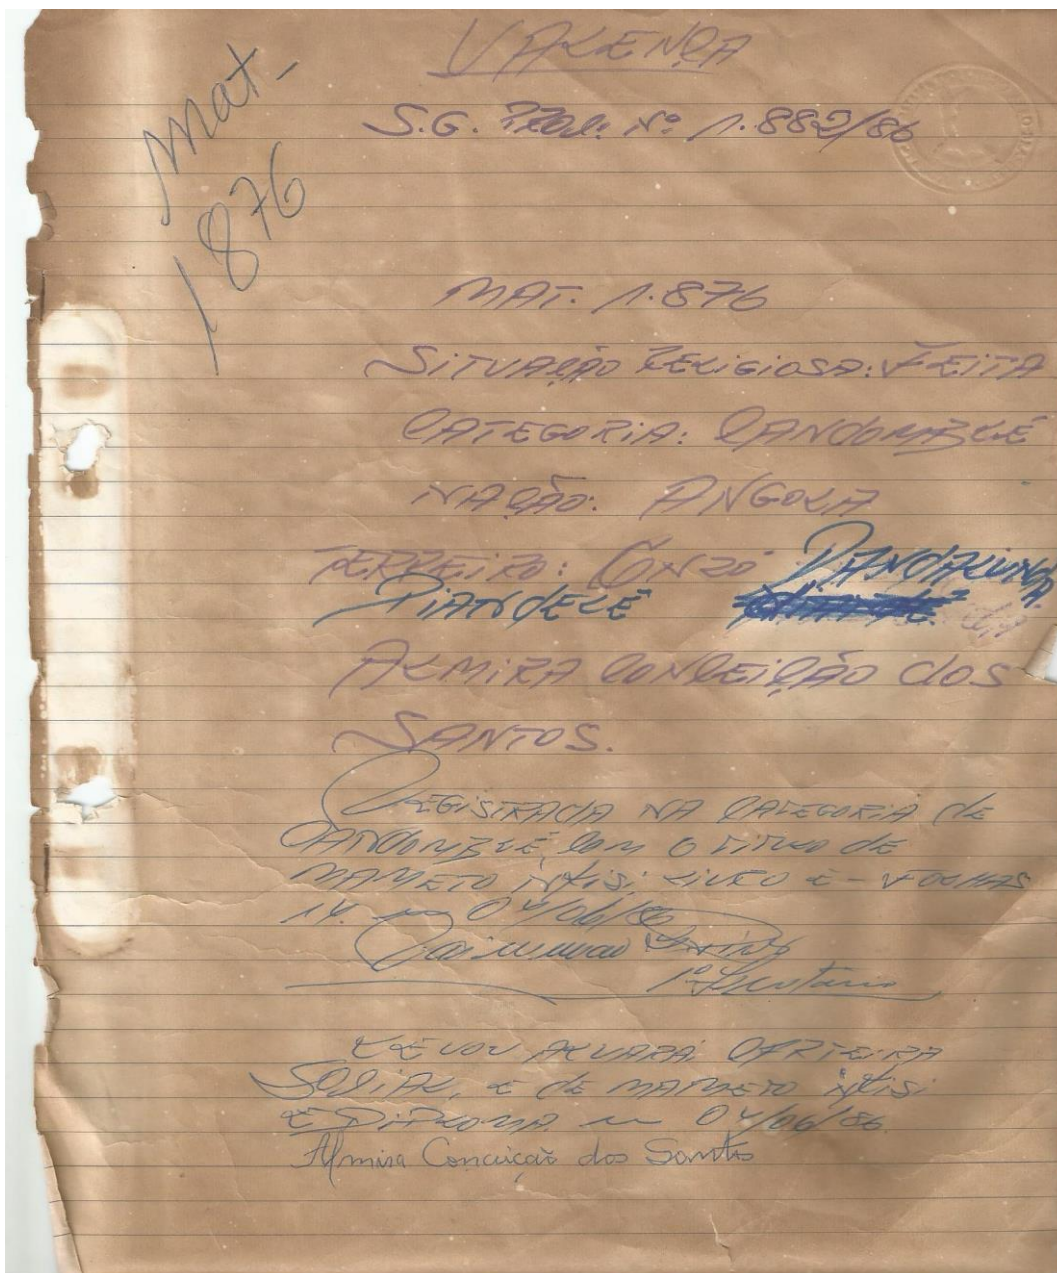 Mat-
1876
VALENÇA
S.G. Prol. Nº 1.882/86
MAT. 1.876
SITUAÇÃO RELIGIOSA: FEITA
CATEGORIA: CANDOMBLÉ
NAÇÃO: ANGOLA
TERREIRO: CONZO DANDALUNDA
DIANDELÉ
ALMIRA CONCEIÇÃO dOS
SANTOS.
REGISTRADA NA CATEGORIA dE
CANDOMBLÉ, COM O TITULO dE
MAMETO INKISI, LIVRO E - FOLHAS
14. em 04/06/86
Raimundo
1º Secretário
LEVOU ALVARÁ CARTEIRA
SOCIAL, E dE MAMETO INKISI
E DIPLOMA em 04/06/86.
Almira Conceição dos Santos